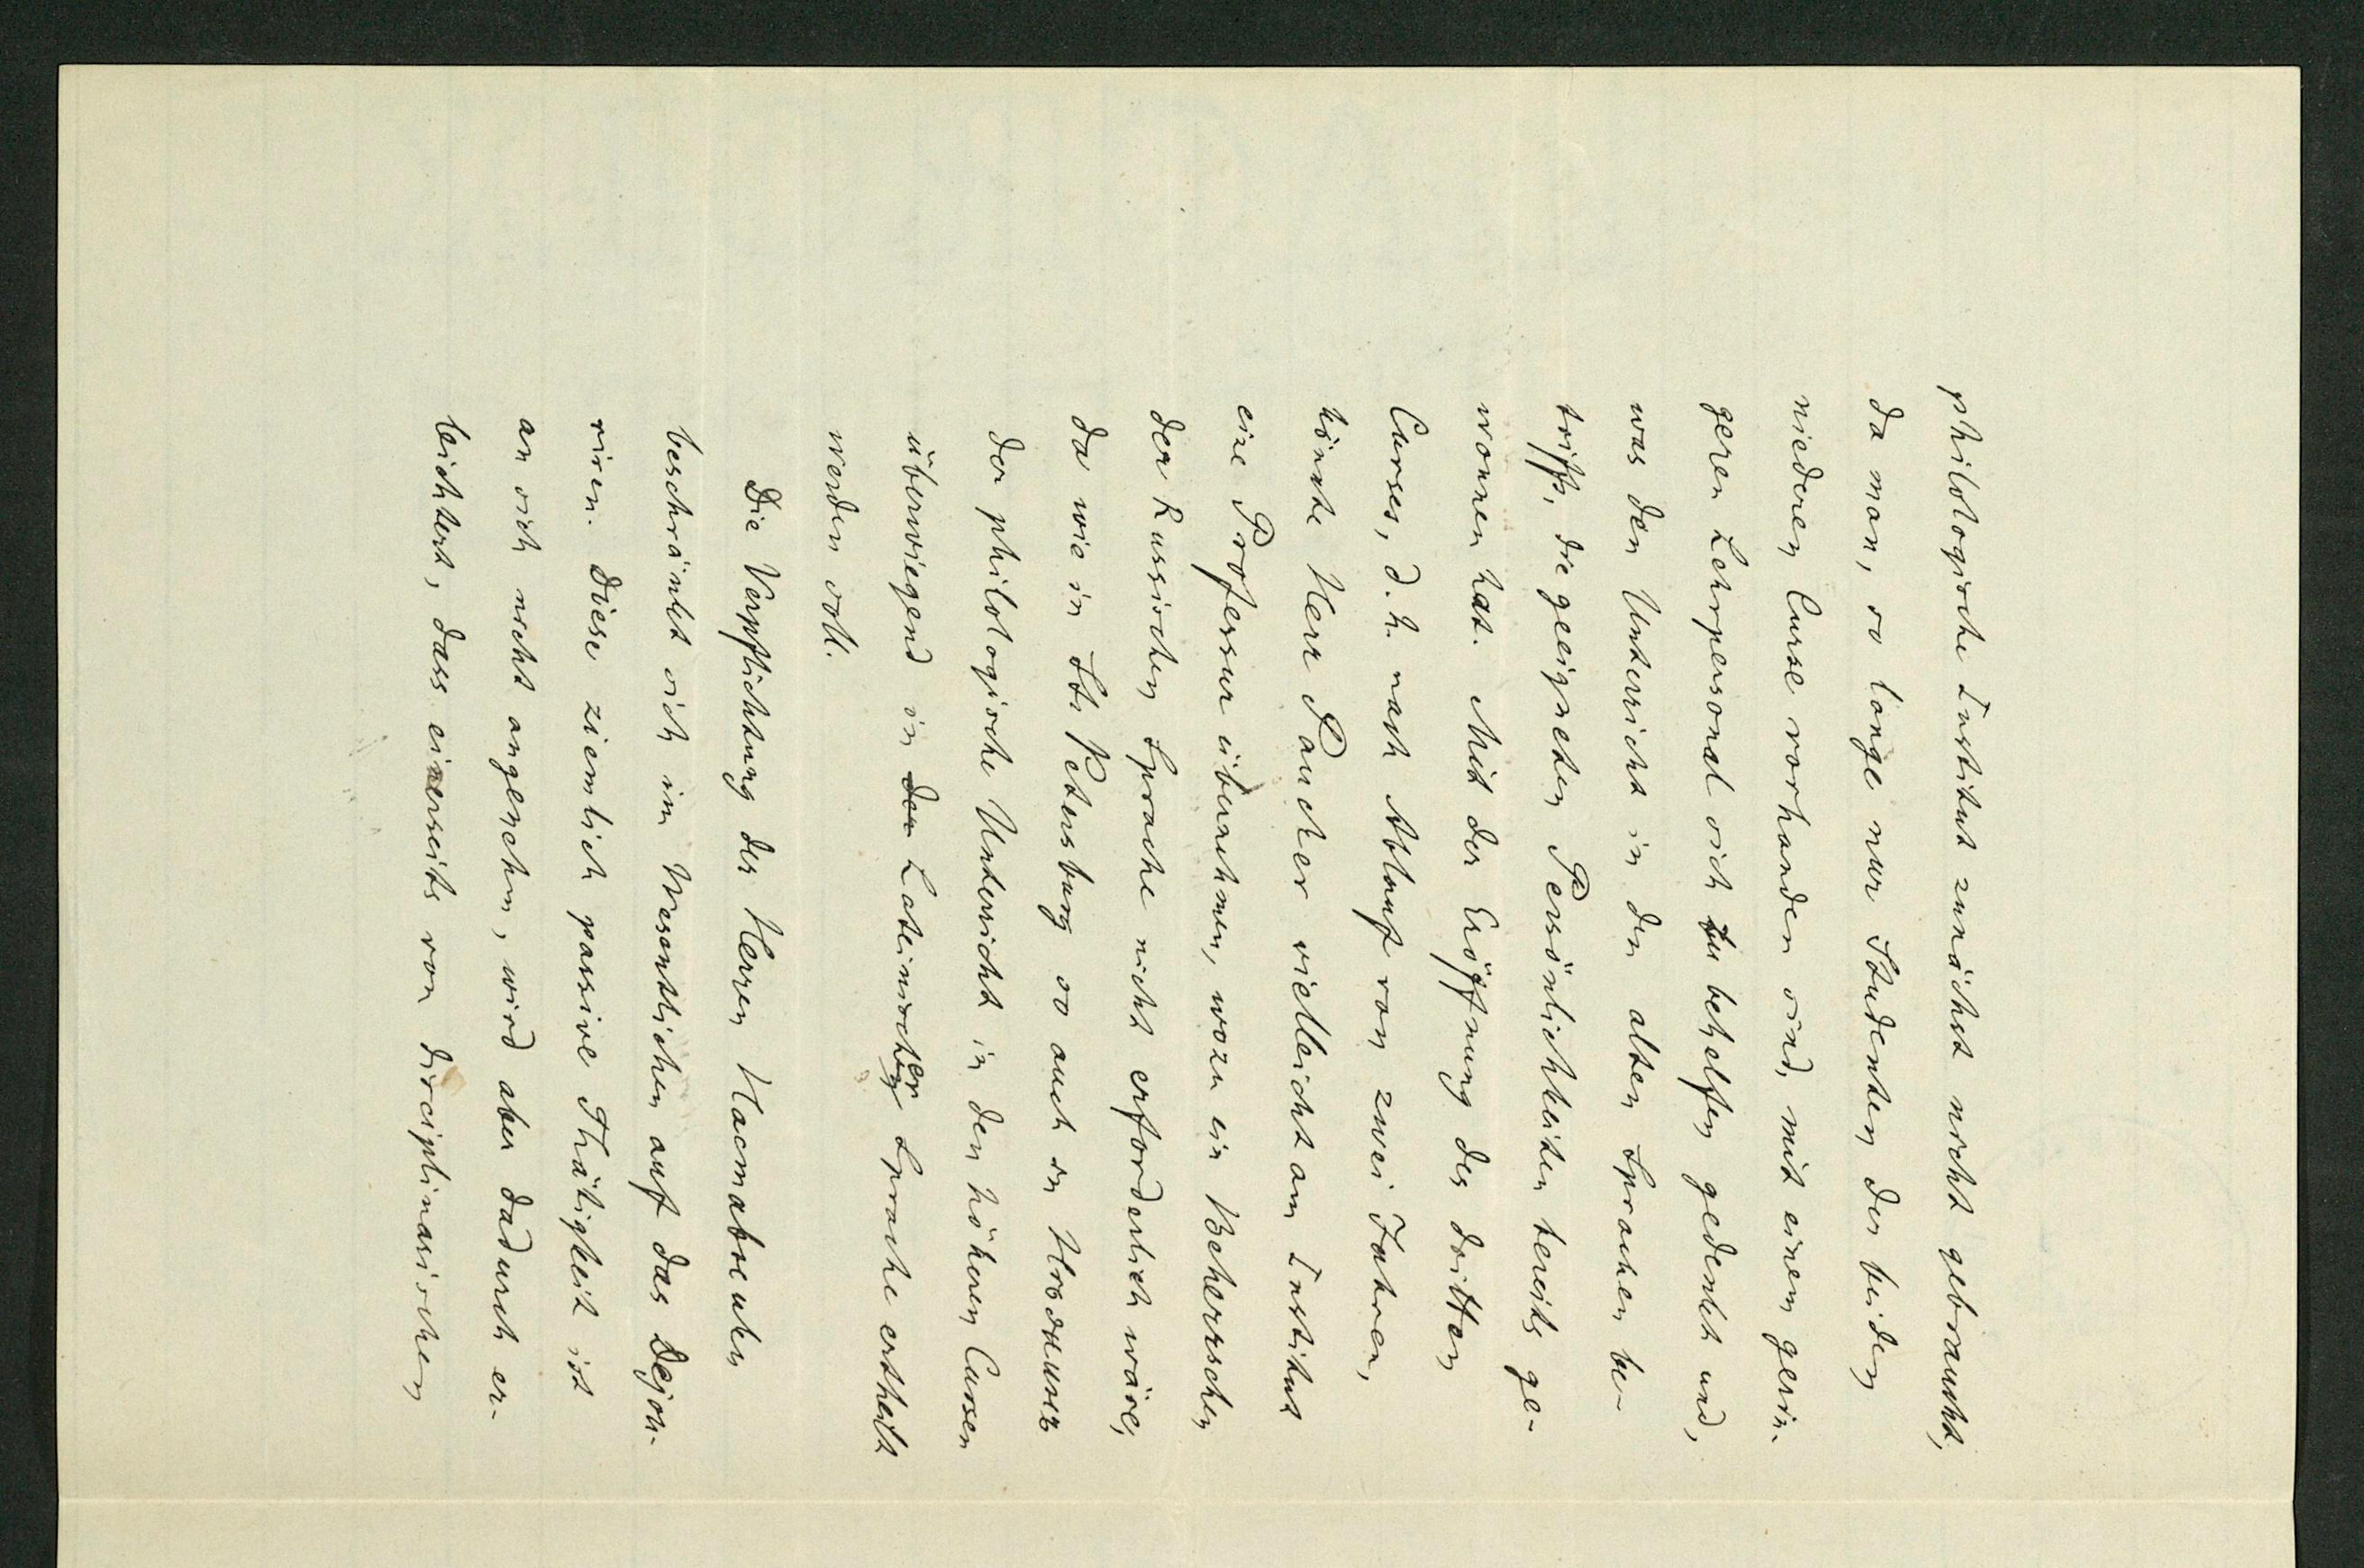 philologische Institut zunächst nicht gebraucht,
da man, so lange nur Studenten der beiden
niederen Curse vorhanden sind, mit einem gerin-
geren Lehrpersonal sich zu behelfen gedenkt und,
was den Unterricht in den alten Sprachen be-
trifft, die geeigneten Persönlichkeiten bereits ge-
wonnen hat. Mit der Eröffnung des dritten
Curses, d.h. nach Ablauf von zwei Jahren,
könnte Herr Paucker vielleicht am Institut
eine Professur übernehmen, wozu ein Beherrschen
der Russischen Sprache nicht erforderlich wäre,
da wie in St. Petersburg so auch in
der philologische Unterricht in den höheren Cursen
überwiegend in der Lateinischer Sprache ertheilt
werden soll.
Die Verpflichtung der Herren
beschränkt sich im Wesentlichen auf das Dejou-
riren. Diese ziemlich passive Thätigkeit ist
an sich nicht angenehm, wird aber dadurch er-
leichtert, dass einerseits von disciplinarischen